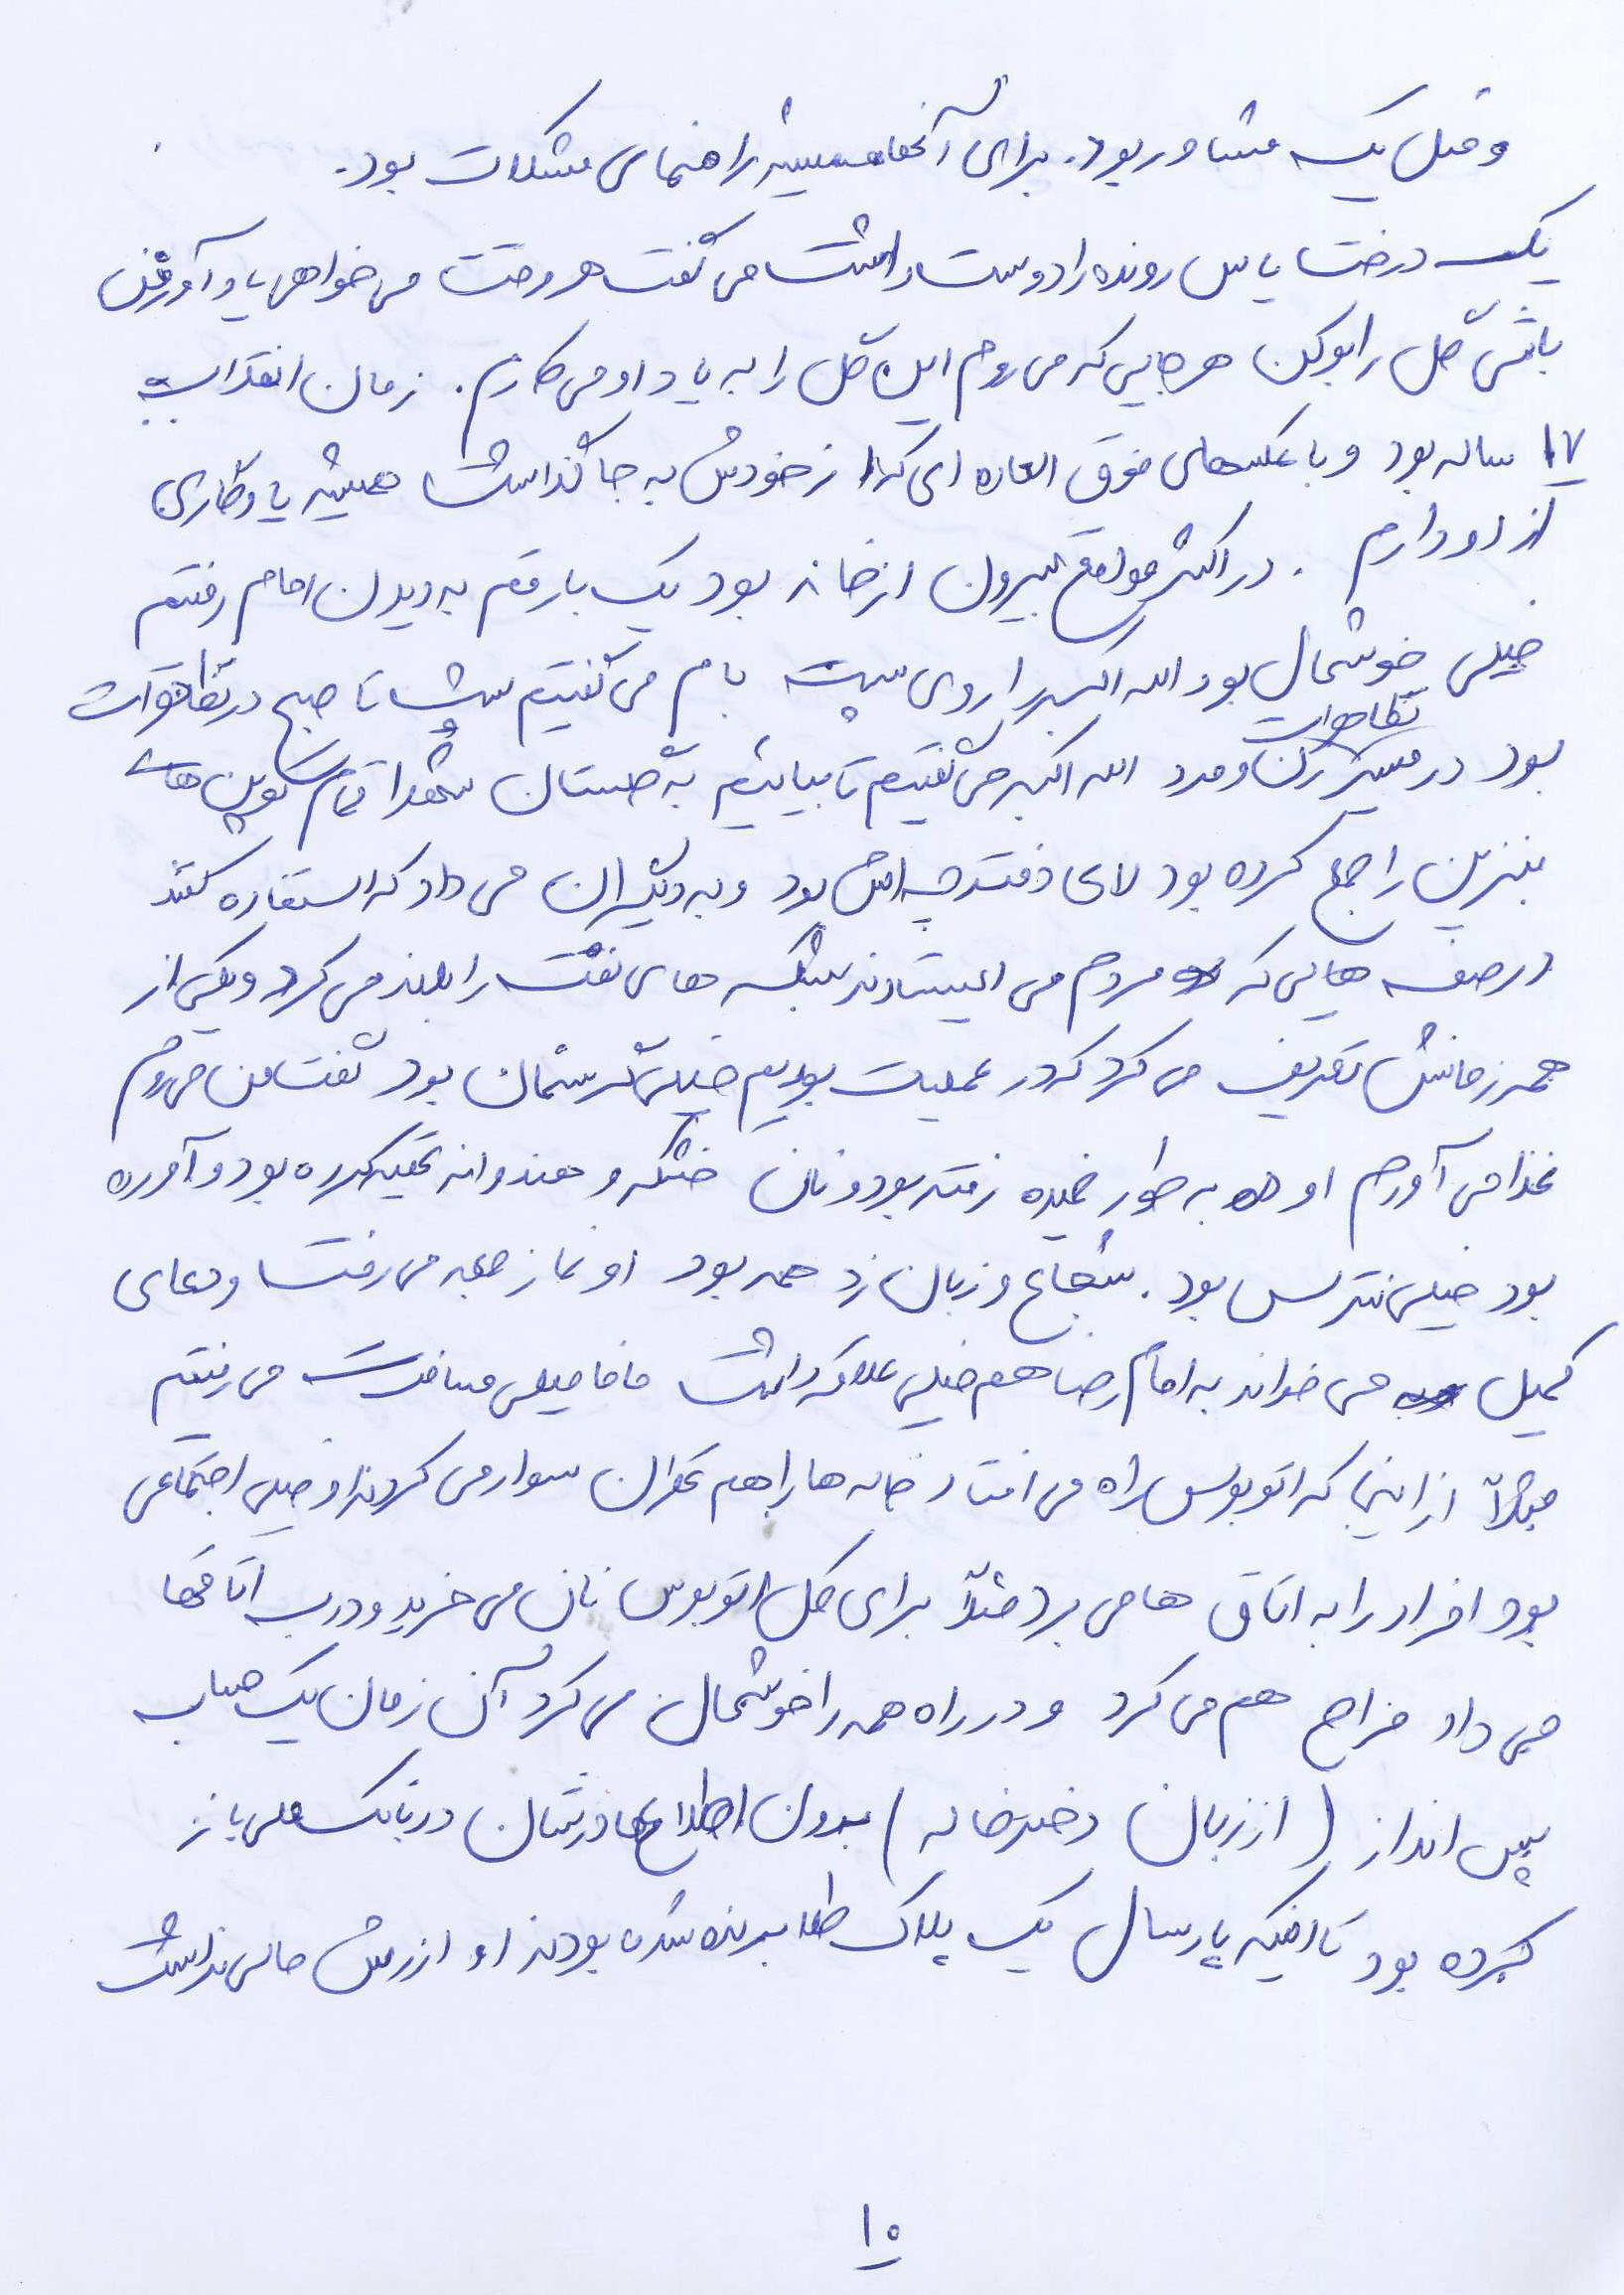 و مثل یک مشاور بود. برای آنها همیشه راهنمای مشکلات بود.
یک درخت یاس رونده را دوست داشت می گفت هر وقت می خواهی یاد آور من
باشی گل را بو کن هرجایی که می روم این گل را به یاد او می کارم. زمان انقلاب
۱۷ ساله بود و با عکسهای فوق العاده ای که از خودش به جا گذاشت همیشه یادگاری
از او دارم. در اکثر مواقع بیرون از خانه بود یک بار هم به دیدن امام رفتیم
خیلی خوشحال بود الله اکبر را روی پشت بام می گفتیم شب تا صبح در تظاهرات
بود در مسیر تظاهرات زن و مرد الله اکبر می گفتیم تا بیاییم به گلستان شهدا تمام کوپن های
بنزین را جمع کرده بود لای دفترچه اش بود و به دیگران می داد که استفاده کنند
در صف هایی که مردم می ایستادند بشکه های نفت را بلند می کرد و یکی از
همرزمانش تعریف می کرد که در عملیات بودیم خیلی گرسنمان بود گفت من می روم
غذا می آورم او به طور خمیده رفته بود و نان خشک و هندوانه تهیه کرده بود و آورده
بود خیلی نترس بود. شجاع و زبان زد همه بود او نماز جمعه می رفت و دعای
کمیل می خواند به امام رضا هم خیلی علاقه داشت ما فامیلی مسافرت می رفتیم
مثلاً از اینجا که اتوبوس راه می افتاد خاله ها را هم تهران سوار می کردند او خیلی اجتماعی
بود افراد را به اتاق ها می برد مثلاً برای کل اتوبوس نان می خرید و درب اتاقها
می داد مزاح هم می کرد و در راه همه را خوشحال می کرد آن زمان یک حساب
پس انداز (از زبان دختر خاله) بدون اطلاع مادرشان در بانک ملی باز
کرده بود تا اینکه پارسال یک پلاک طلا برنده شده بودند او ارزش مالی نداشت
۱۰